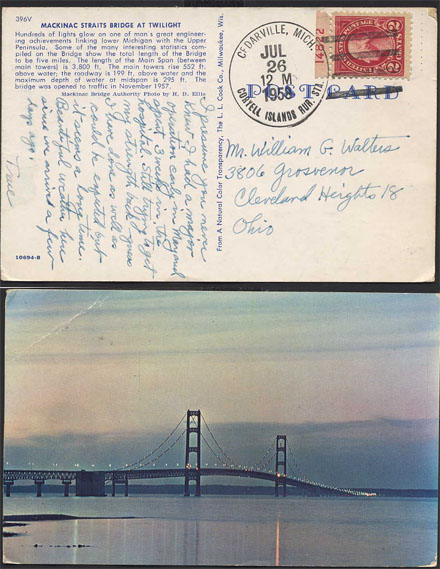 396V
MACKINAC STRAITS BRIDGE AT TWILIGHT
Hundreds of lights glow on one of man's great engineer-
ing achievements linking lower Michigan with the Upper
Peninsula. Some of the many interesting statistics com-
piled on the Bridge show the total length of the Bridge
to be five miles. The length of the Main Span (between
main towers) is 3,800 ft. The main towers rise 552 ft.
above water; the roadway is 199 ft. above water and the
maximum depth of water at midspan is 295 ft. The
bridge was opened to traffic in November 1957.
Mackinac Bridge Authority Photo by H. D. Ellis
I presume you never
knew I had a major
operation early in May and
spent 3 weeks in the
hospital. Still trying to get
my strength back. I guess
I have done as well as
could be expected but
it seems a long time.
Beautiful weather here
since we arrived a few
days ago.
True
10694-B
From A Natural Color Transparency, The L. L. Cook Co., Milwaukee, Wis.
CEDARVILLE, MICH.
JUL
26
12 M
1958
CORYELL ISLANDS RUR. STA.
14522
POST CARD
Mr. William G. Walters
3806 Grosvenor
Cleveland Heights 18
Ohio